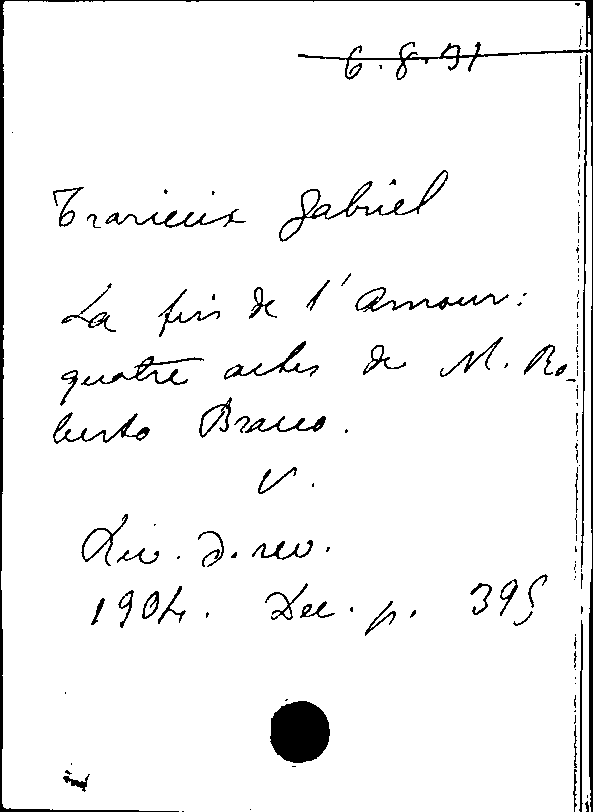 6.8.91
Trarieux Gabriel
La fin de l'amour:
quatre actes de M. Ro-
berto Bracco.
V.
Riv. d. riv.
1904. Dec. p. 395